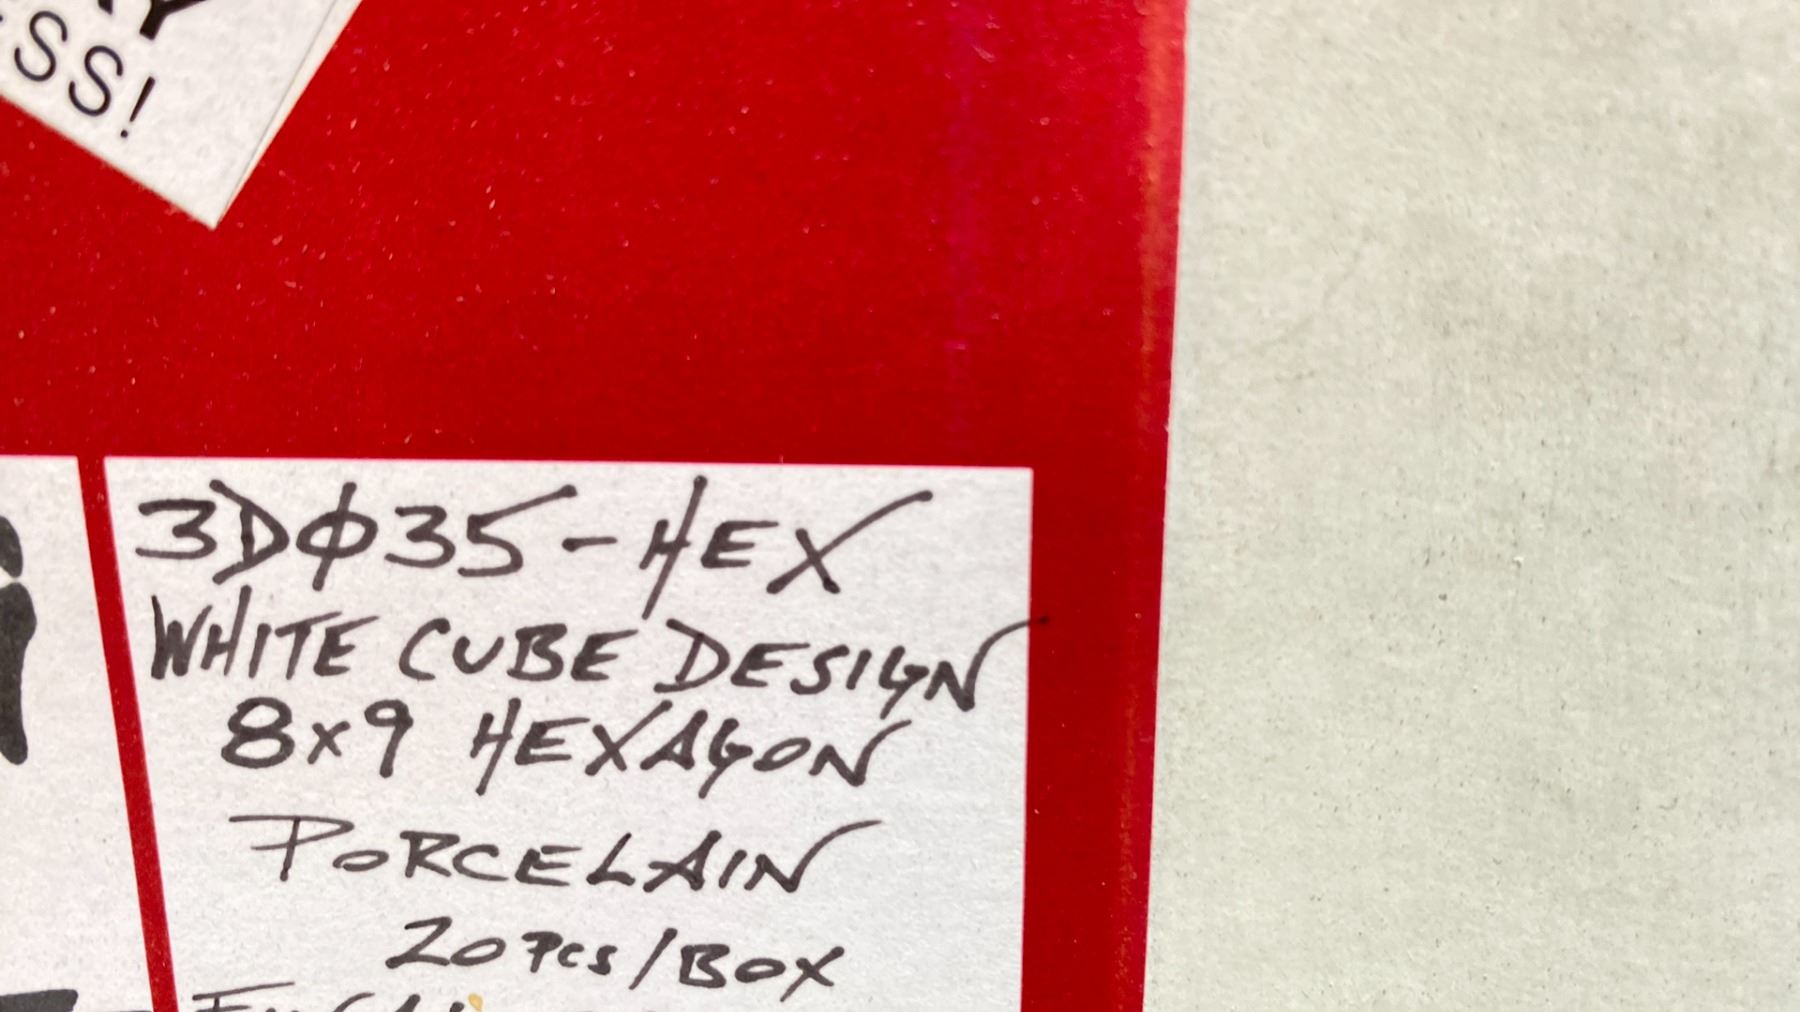 SS!
3DØ35-HEX
WHITE CUBE DESIGN
8x9 HEXAGON
PORCELAIN
20 PCS/BOX